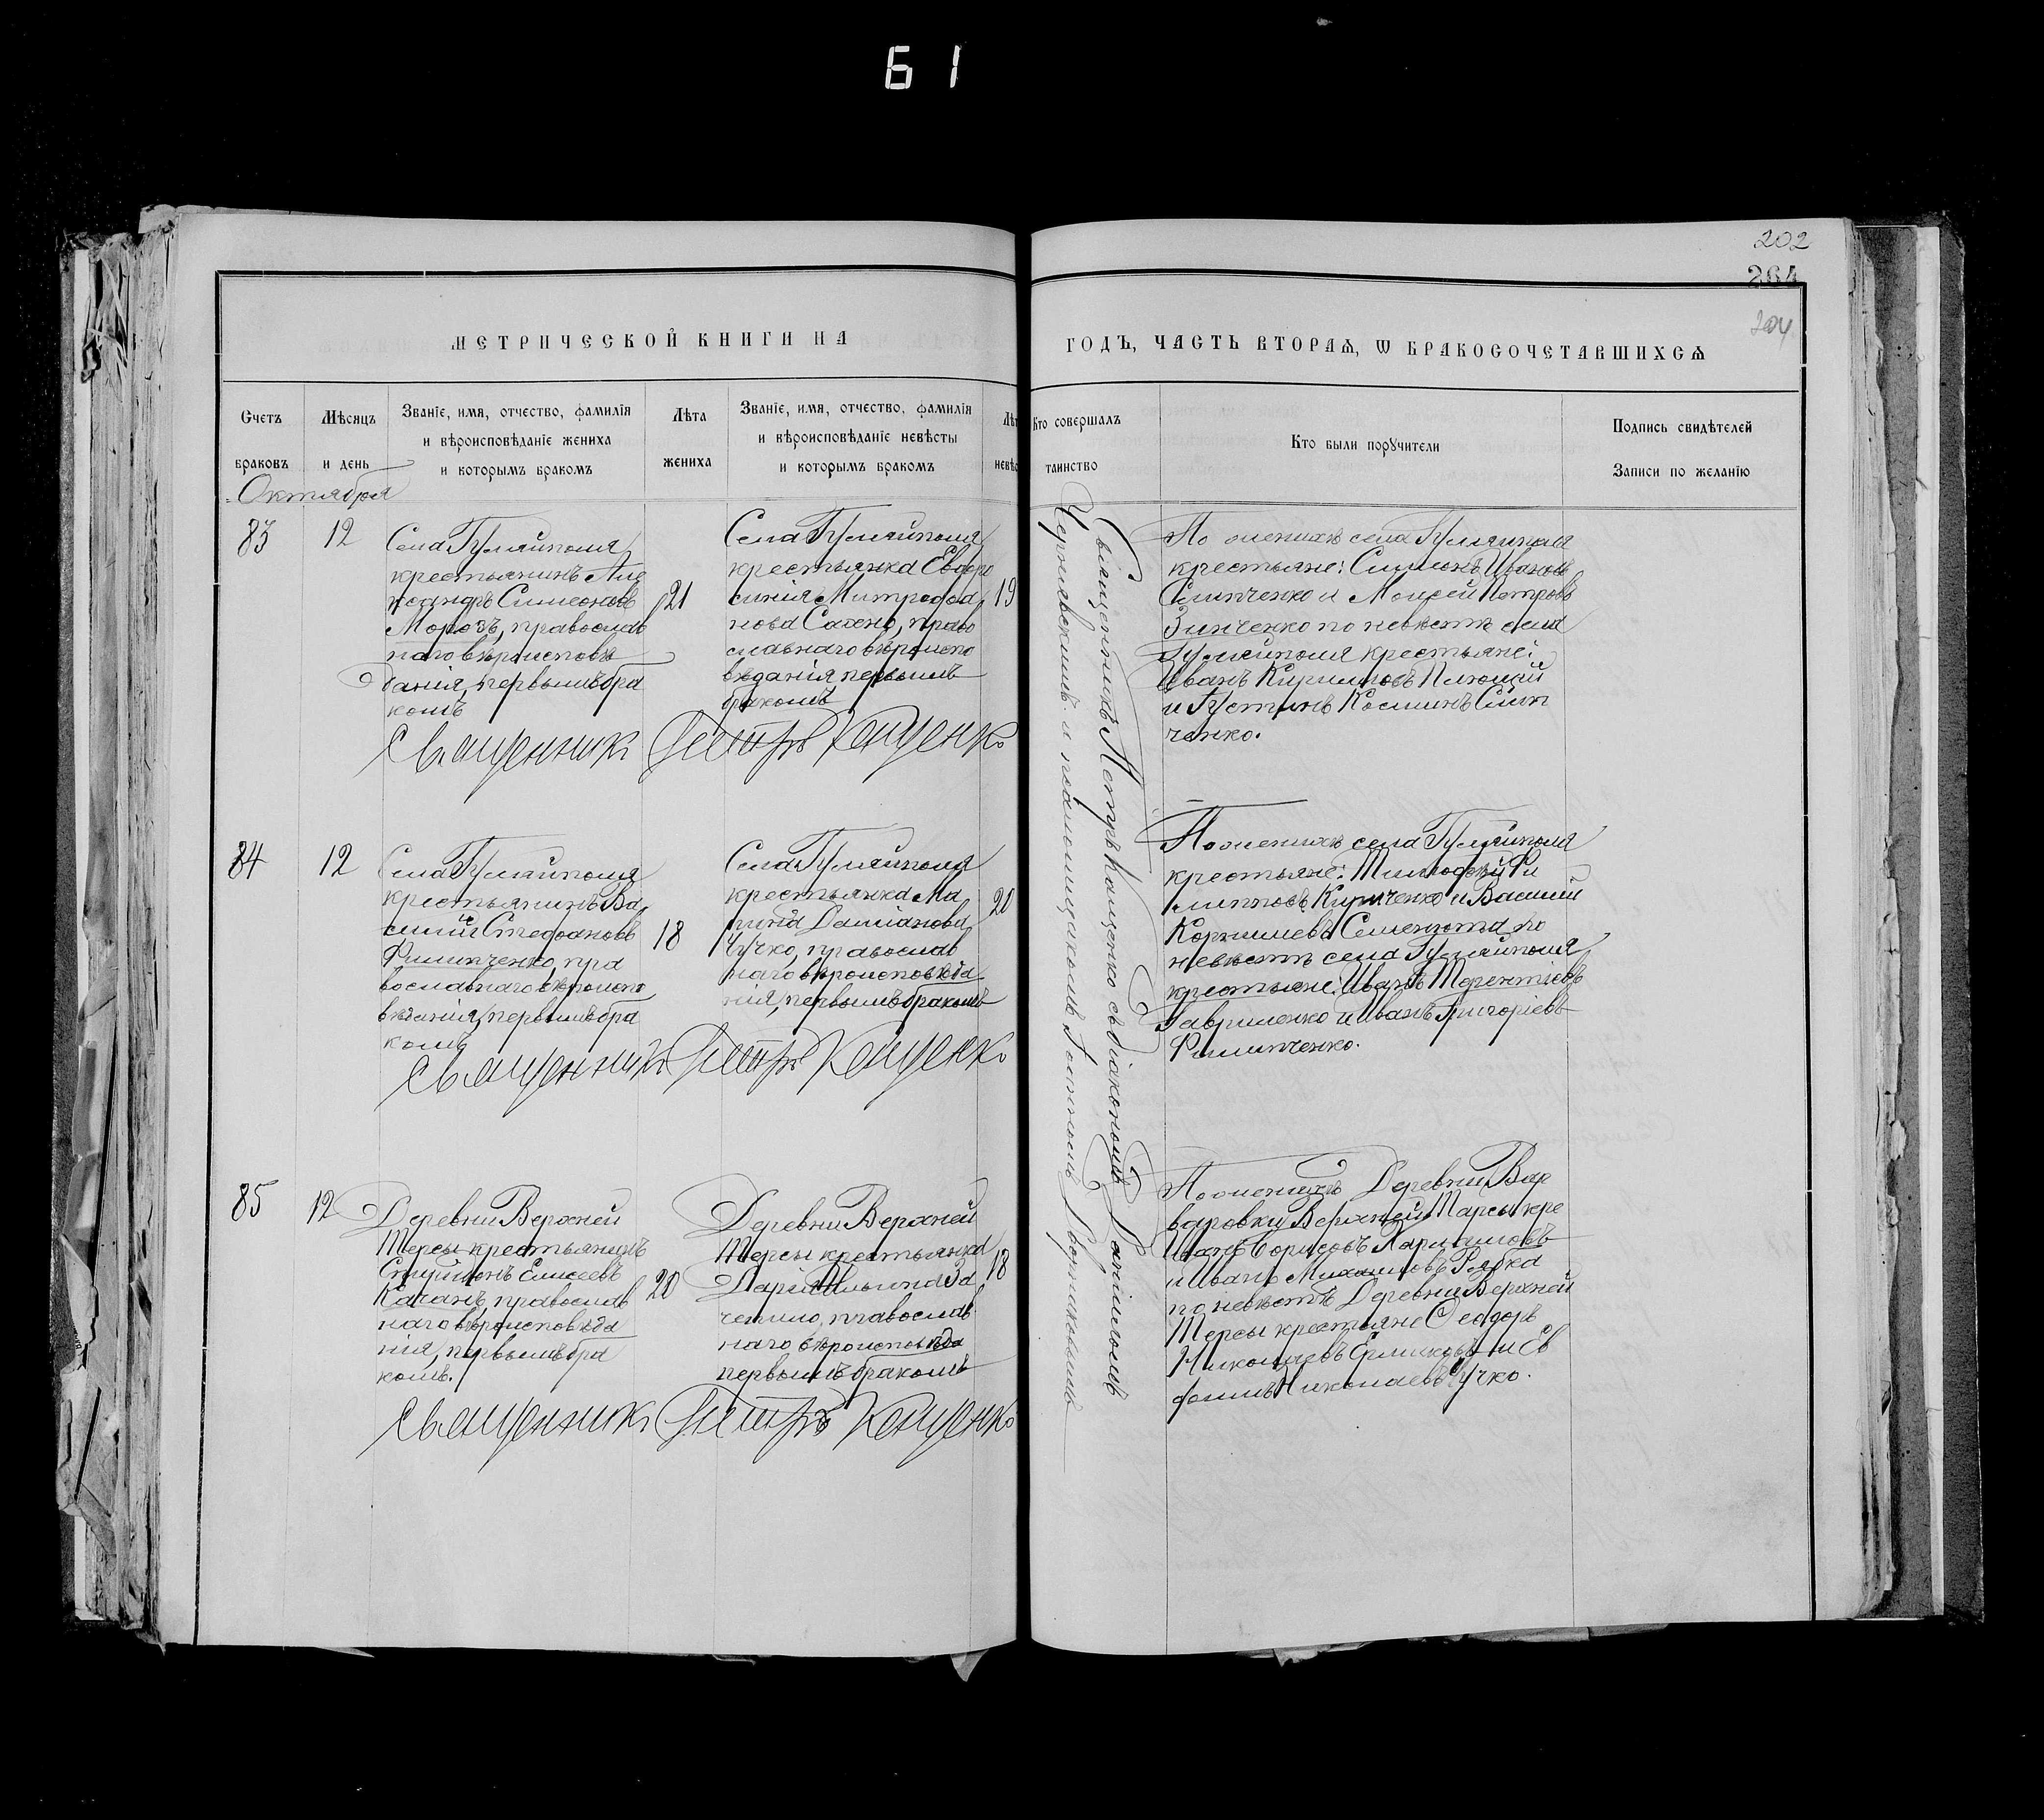 Б1
202
264
204
МЕТРИЧЕСКОЙ КНИГИ НА
ГОДЪ, ЧАСТЬ ВТОРАѦ, Ѡ БРАКОСОЧЕТАВШИХСѦ
Счетъ браковъ
Мѣсяцъ и день
Званіе, имя, отчество, фамилія
и вѣроисповѣданіе жениха
и которымъ бракомъ
Лѣта
жениха
Званіе, имя, отчество, фамилія
и вѣроисповѣданіе невѣсты
и которымъ бракомъ
Лѣт
невѣс
Кто совершалъ
таинство
Кто были порꙋчители
Подпись свидѣтелей
Записи по желанію
Октября
83
12
Села Гуляйполя
крестьянинъ Але
ксандръ Симеоновъ
Морозъ, православ
наго вѣроисповѣ
данія, первымъ бра
комъ
21
Села Гуляйполя
крестьянка Евфро
синія Митрофа
нова Сахно, право
славнаго вѣроиспо
вѣданія первымъ
бракомъ
19
Священникъ Петръ Кащенко
По женихѣ села Гуляйполя
крестьяне: Симеонъ Ивановъ
Слипченко и Моисей Петровъ
Зинченко по невѣстѣ села
Гуляйполя крестьяне:
Иванъ Кирилловъ
и Іустинъ Косминъ Слип
ченко.
84
12
Села Гуляйполя
крестьянинъ Ва
силій Стефановъ
Филипченко, пра
вославнаго вѣроиспо
вѣданія, первымъ бра
комъ
18
Села Гуляйполя
крестьянка Ма
рина Даміанова
Чучко, православ
наго вѣроисповѣда
нія, первымъ бракомъ
20
Священникъ Петръ Кащенко
По женихѣ села Гуляйполя
крестьяне: Тимофей Фи
липповъ Кириченко и Василій
Корнилевъ Семенюта по
невѣстѣ села Гуляйполя
крестьяне: Иванъ Терентіевъ
Гавриленко и Иванъ Григоріевъ
Филипченко.
85
12
Деревни Верхней
Терсы крестьянинъ
Елисеевъ
Качанъ, православ
наго вѣроисповѣда
нія, первымъ бра
комъ.
20
Деревни Верхней
Терсы крестьянка
Дарія Ильина За
чепило, православ
наго вѣроисповѣда
первымъ бракомъ
18
Священникъ Петръ Кащенко
По женихѣ Деревни Вар
варовки Верхней Тарсы кре
Иванъ Борисовъ
и Иванъ Михаиловъ Рябка
по невѣстѣ Деревни Верхней
Терсы крестьяне Ѳеодоръ
Николаевъ Ермаковъ и Ев
фимъ Николаевъ Чучко.
Священникъ Петръ Кащенко съ діакономъ Даніиломъ
Чернявскимъ и псаломщикомъ